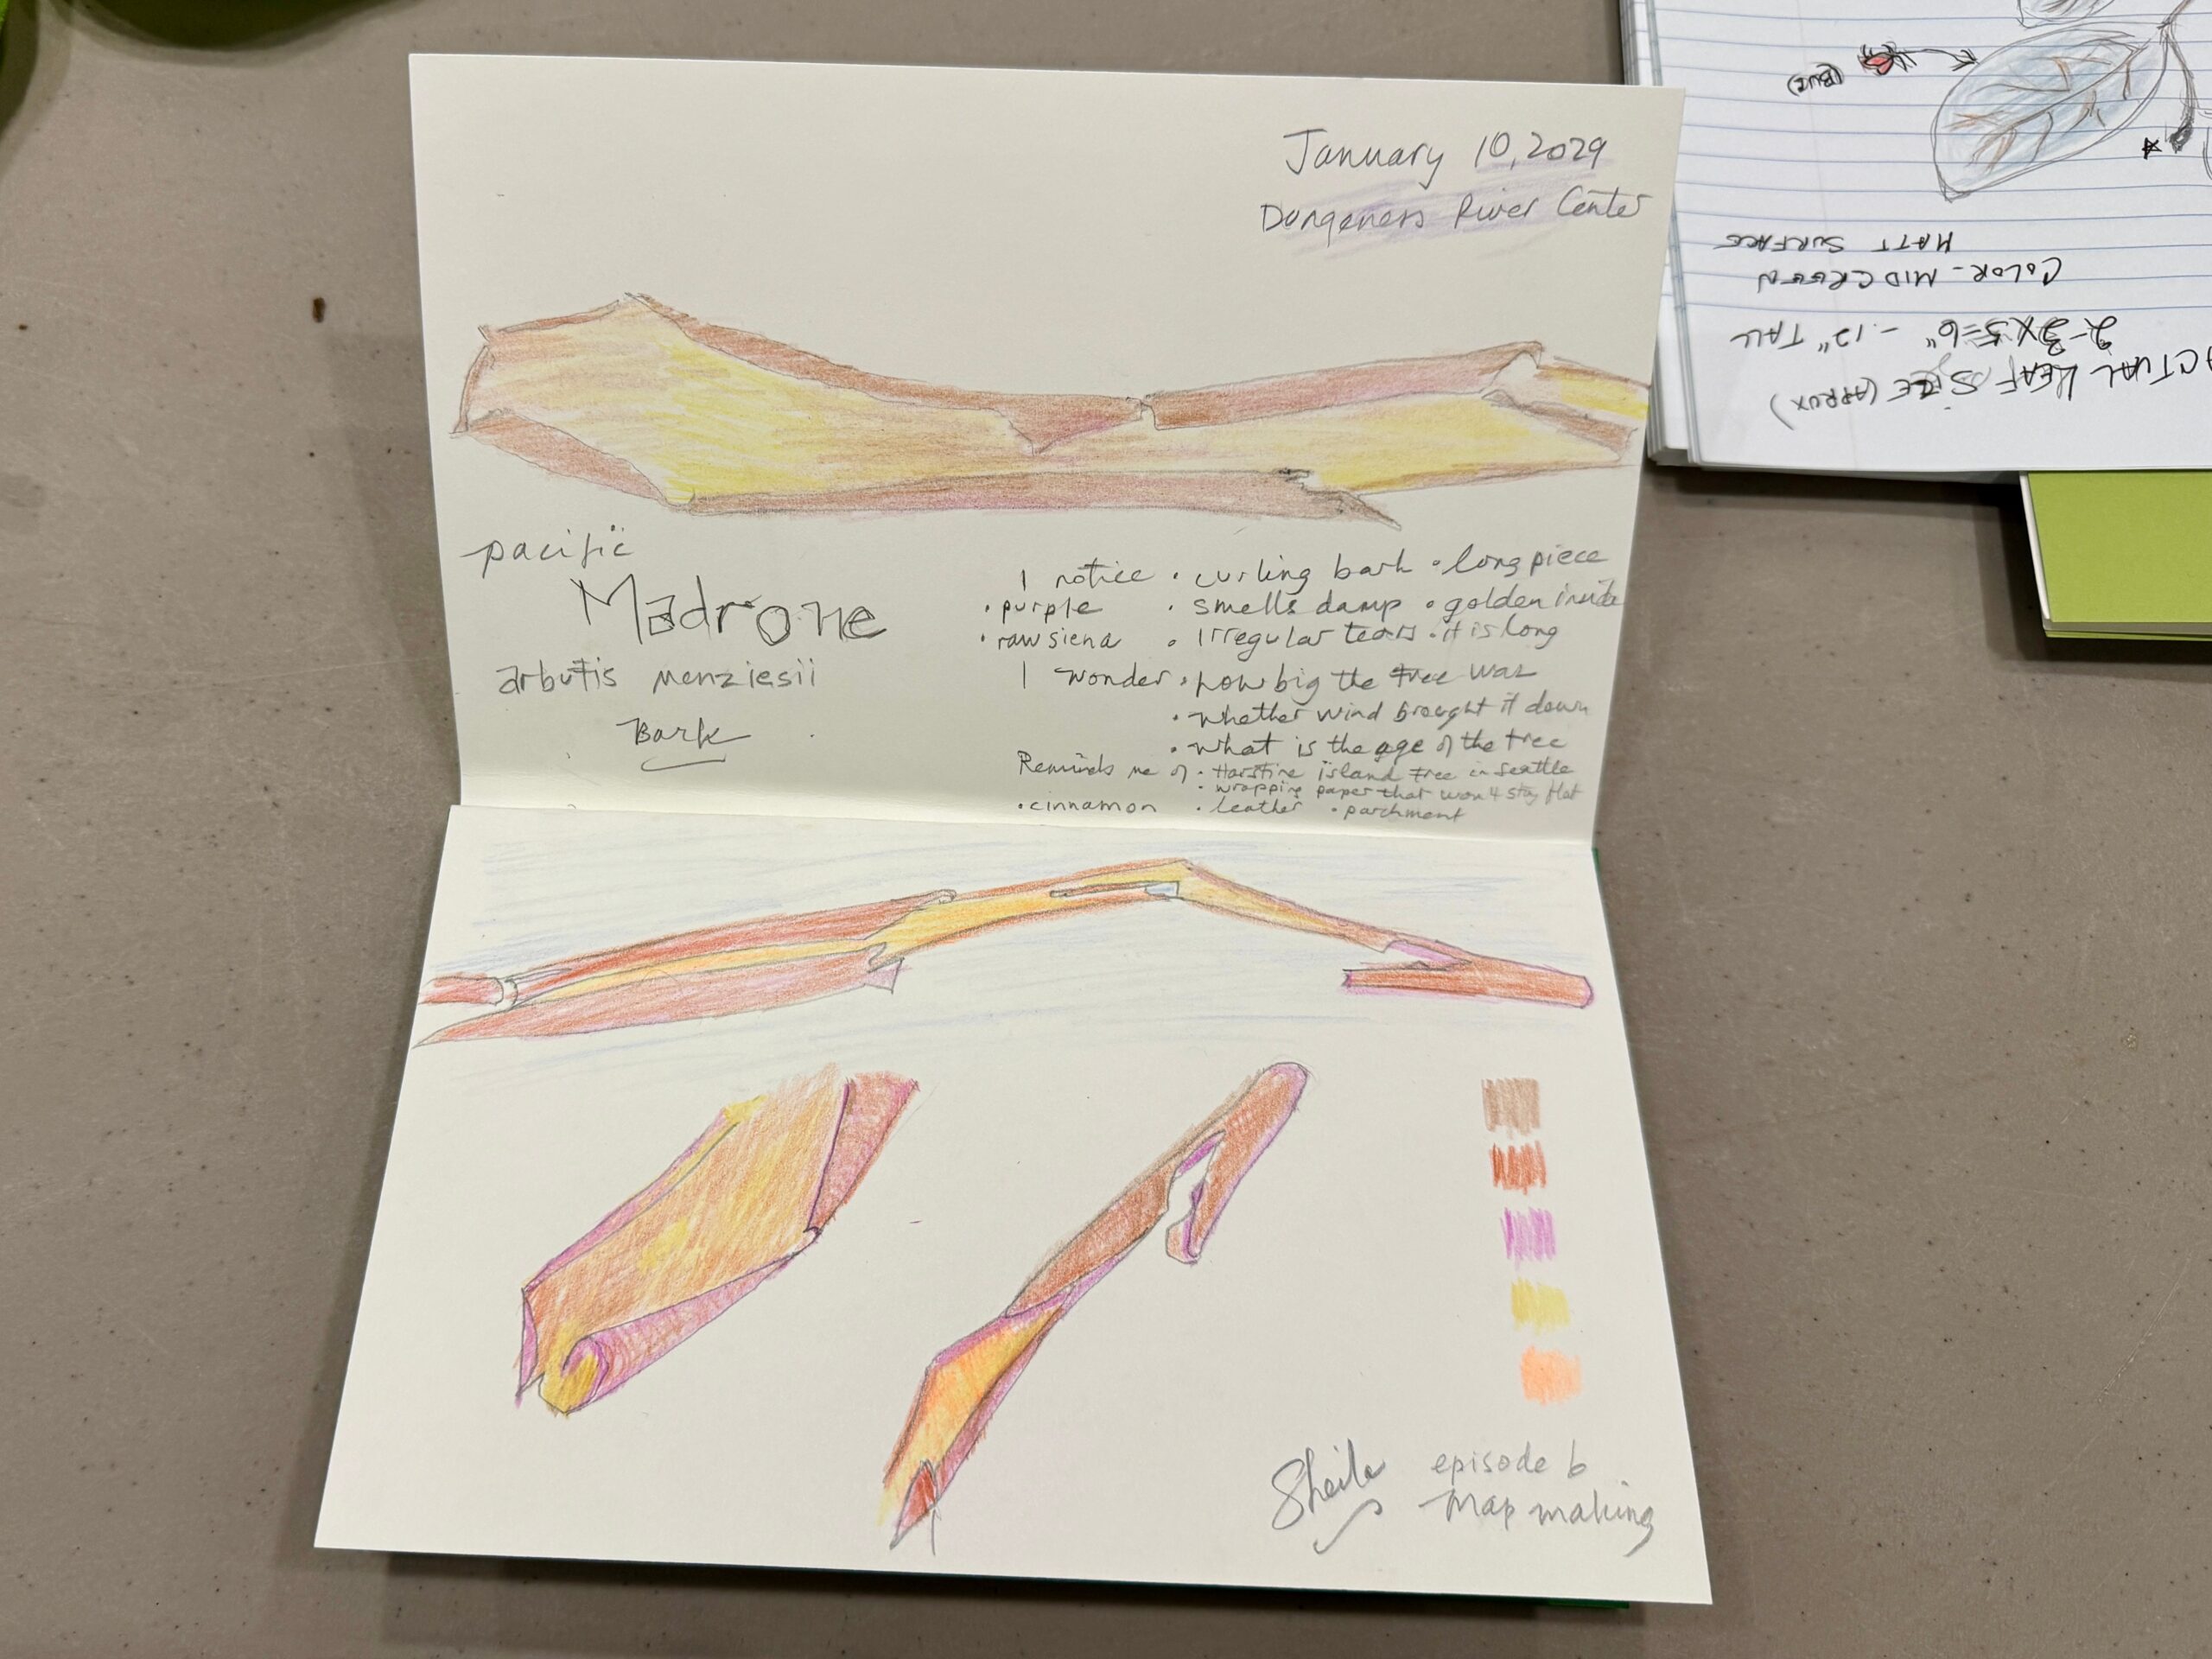 January 10, 2029
Dungeness River Center
pacific
Madrone
arbutis menziesii
Bark
I notice • curling bark • long piece
• purple • smells damp • golden inside
• raw siena • Irregular tears • it is long
I wonder • how big the tree was
• whether wind brought it down
• what is the age of the tree
Reminds me of • Harstine island tree in seattle
• wrapping paper that won't stay flat
• cinnamon • leather • parchment
Sheila
episode 6
map making
ACTUAL LEAF SIZE (APPROX)
2-3 X 5=6" - 12" TALL
COLOR - MID GREEN
MATT SURFACE